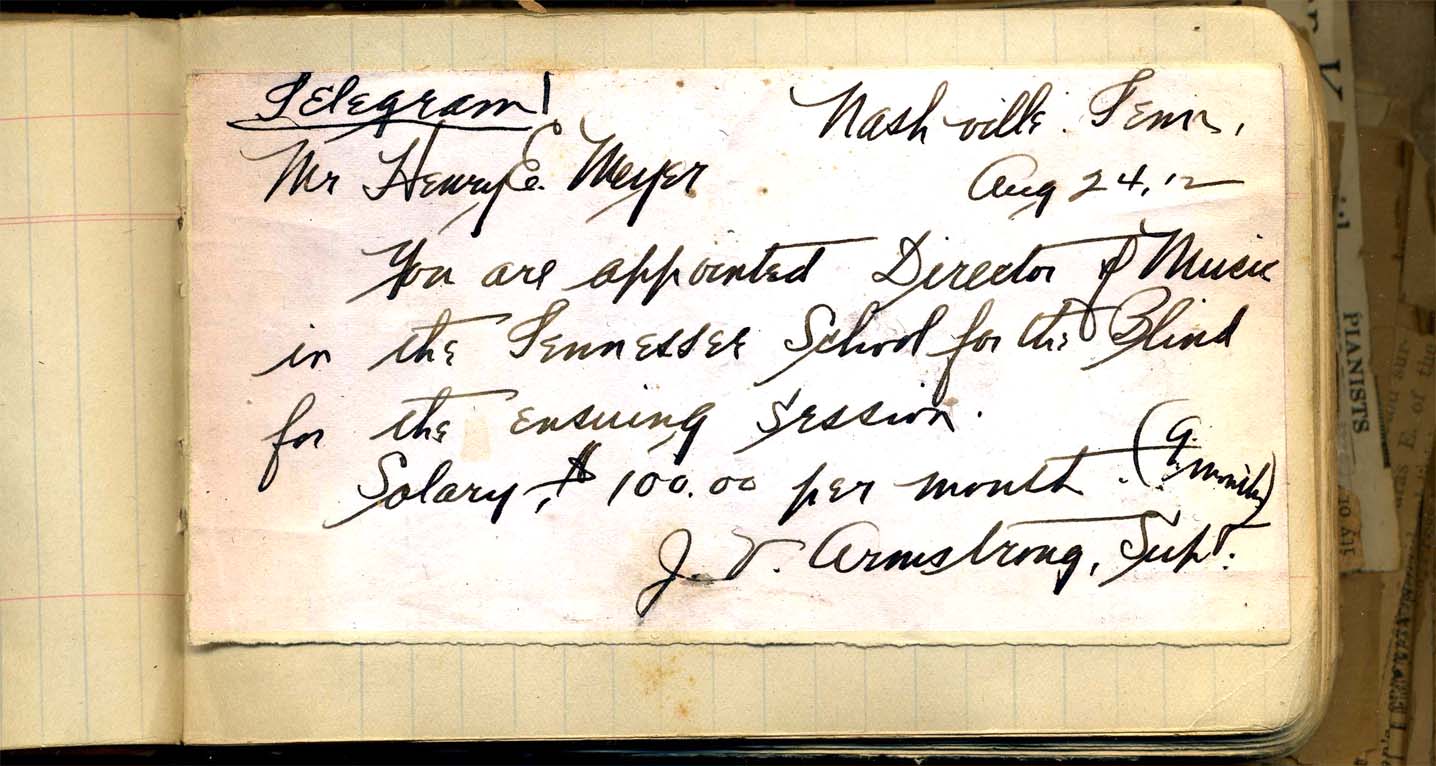 Telegram!
Nashville. Tenn.
Mr Henry E. Meyer
Aug 24, 12
You are appointed Director of Music
in the Tennessee School for the Blind
for the ensuing session.
Salary, $100.00 per month. (9 months)
J. V. Armstrong, Supt.
PIANISTS
ity of
E. of the